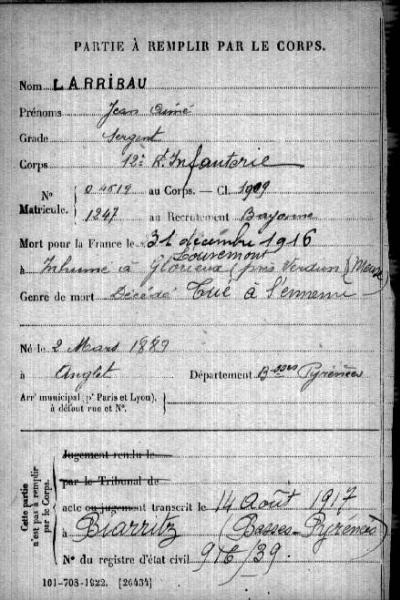 PARTIE À REMPLIR PAR LE CORPS.
Nom LARRIBAU
Prénoms Jean Aimé
Grade Sergent
Corps 12e R. Infanterie
N° Matricule. 04519 au Corps. — Cl. 1909
1247 au Recrutement Bayonne
Mort pour la France le 31 décembre 1916
Louvemont
à Inhumé à Glorieux (près Verdun) (Meuse)
Genre de mort Décédé Tué à l'ennemi
Né le 2 Mars 1889
à Anglet Département Bsses Pyrénées
Arrt municipal (pr Paris et Lyon), à défaut rue et N°.
Cette partie n'est pas à remplir par le Corps.
Jugement rendu le
par le Tribunal de
acte ou jugement transcrit le 14 Août 1917
à Biarritz (Basses-Pyrénées)
N° du registre d'état civil 916/39.
101-708-1922. [26434]